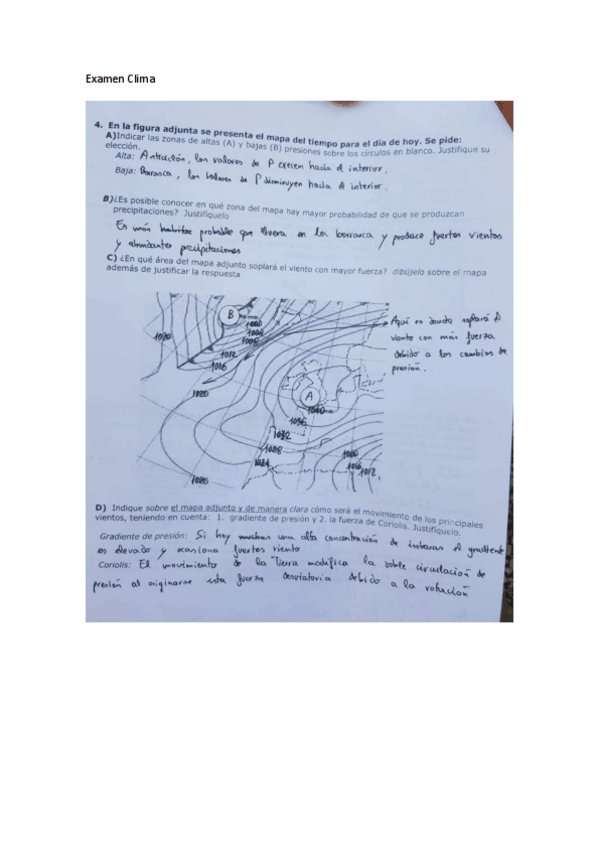 Examen Clima
4. En la figura adjunta se presenta el mapa del tiempo para el día de hoy. Se pide:
A)Indicar las zonas de altas (A) y bajas (B) presiones sobre los círculos en blanco. Justifique su
elección.
Alta: Anticiclón, los valores de P crecen hacia el interior.
Baja: Borrasca, los valores de P disminuyen hacia el interior.
B)¿Es posible conocer en qué zona del mapa hay mayor probabilidad de que se produzcan
precipitaciones? Justifíquelo
Es más probable que llueva en la borrasca y produce fuertes vientos
y abundantes precipitaciones
C) ¿En qué área del mapa adjunto soplará el viento con mayor fuerza? dibújelo sobre el mapa
además de justificar la respuesta
B
1000
1004
1008
1020
1012
1016
1020
Aquí es donde soplará el
viento con más fuerza
debido a los cambios de
presión.
A
1040
1036
1032
1028
1024
1020
1016
1012
1020
D) Indique sobre el mapa adjunto y de manera clara cómo será el movimiento de los principales
vientos, teniendo en cuenta: 1. gradiente de presión y 2. la fuerza de Coriolis. Justifíquelo.
Gradiente de presión: Si hay una alta concentración de isobaras el gradiente
es elevado y ocasiona fuertes viento
Coriolis: El movimiento de la Tierra modifica la doble circulación de
presión al originarse esta fuerza desviatoria debido a la rotación